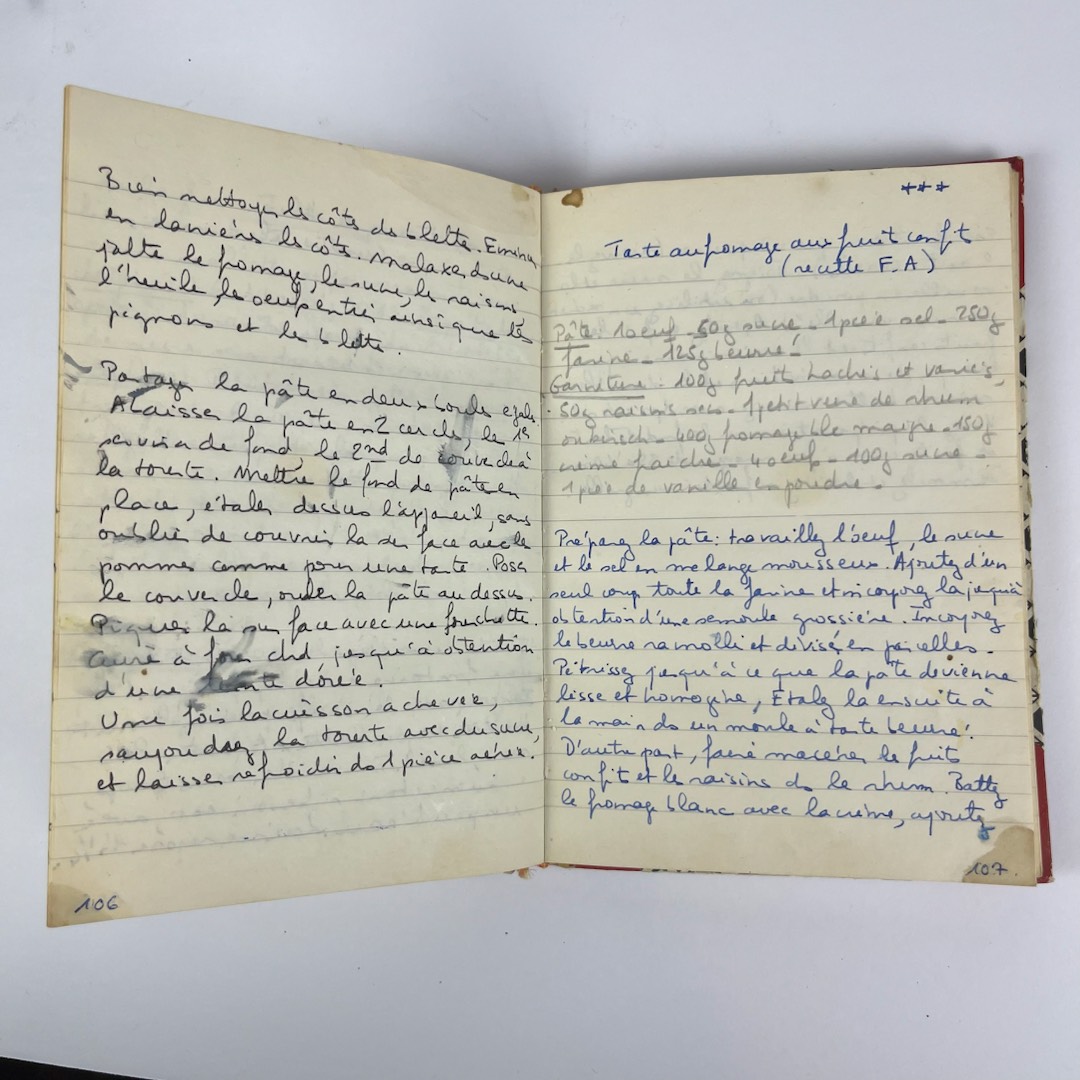 Bien nettoyer les côtes des blette. Emincer
en lanières les côts. Malaxer dsune
jatte le fomage, le sucre, les raisins,
l'huile les oeufs entiers ainsi que les
pignons et les blette.
Partager la pâte en deux boules egales.
Abaisser la pâte en 2 cercles, le 1er
servira de fond, le 2nd de couvercle à
la tourte. Mettre le fond de pâte en
place, étaler dessus l'appareil, sans
oublier de couvrir la surface avec les
pommes comme pour une tarte. Poser
le couvercle, ourler la pâte au dessus.
Piquer la surface avec une fourchette.
Cuire à four chd jusqu'à obtention
d'une tourte dorée.
Une fois la cuisson achevée,
saupoudrez la tourte avec du sucre,
et laisser refroidir ds 1 pièce aérée.
106
+++
Tarte au fomage aux fruit confit
(recette F.A)
Pâte: 1 oeuf - 50g sucre - 1 pcée sel - 250g
farine - 125g beurre.
Garniture: 100g fruits hachés et variés,
50g raisins secs - 1 petit verre de rhum
ou kirsch - 400g fomage blc maigre - 150g
crème fraiche - 4 oeuf - 100g sucre -
1 pcée de vanille en poudre.
Préparez la pâte: travaillez l'oeuf, le sucre
et le sel en melange mousseux. Ajoutez d'un
seul coup toute la farine et incorporez la jusqu'à
obtention d'une semoule grossière. Incorporez
le beurre ramolli et divisé en parcelles.
Pétrissez jusqu'à ce que la pâte devienne
lisse et homogène, Etalez la ensuite à
la main ds un moule à tarte beurré.
D'autre part, faire macérer les fruit
confit et les raisins ds le rhum. Battez
le fromage blanc avec la crème, ajoutez
107